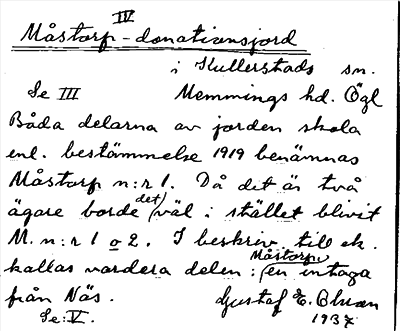 IV
Måstorp - donationsjord
i Skullerstads sn.
Se III Memmings hd. Ögl
Båda delarna av jorden skola
enl. bestämmelse 1919 benämnas
Måstorp n:r 1. Då det är två
ägare borde (det) väl i stället blivit
M. n:r 1 o 2. I beskriv. till ek.
kallas vardera delen: (Måstorp, en intaga
från Näs. Gustaf E. Olsson
Se: V. 1937